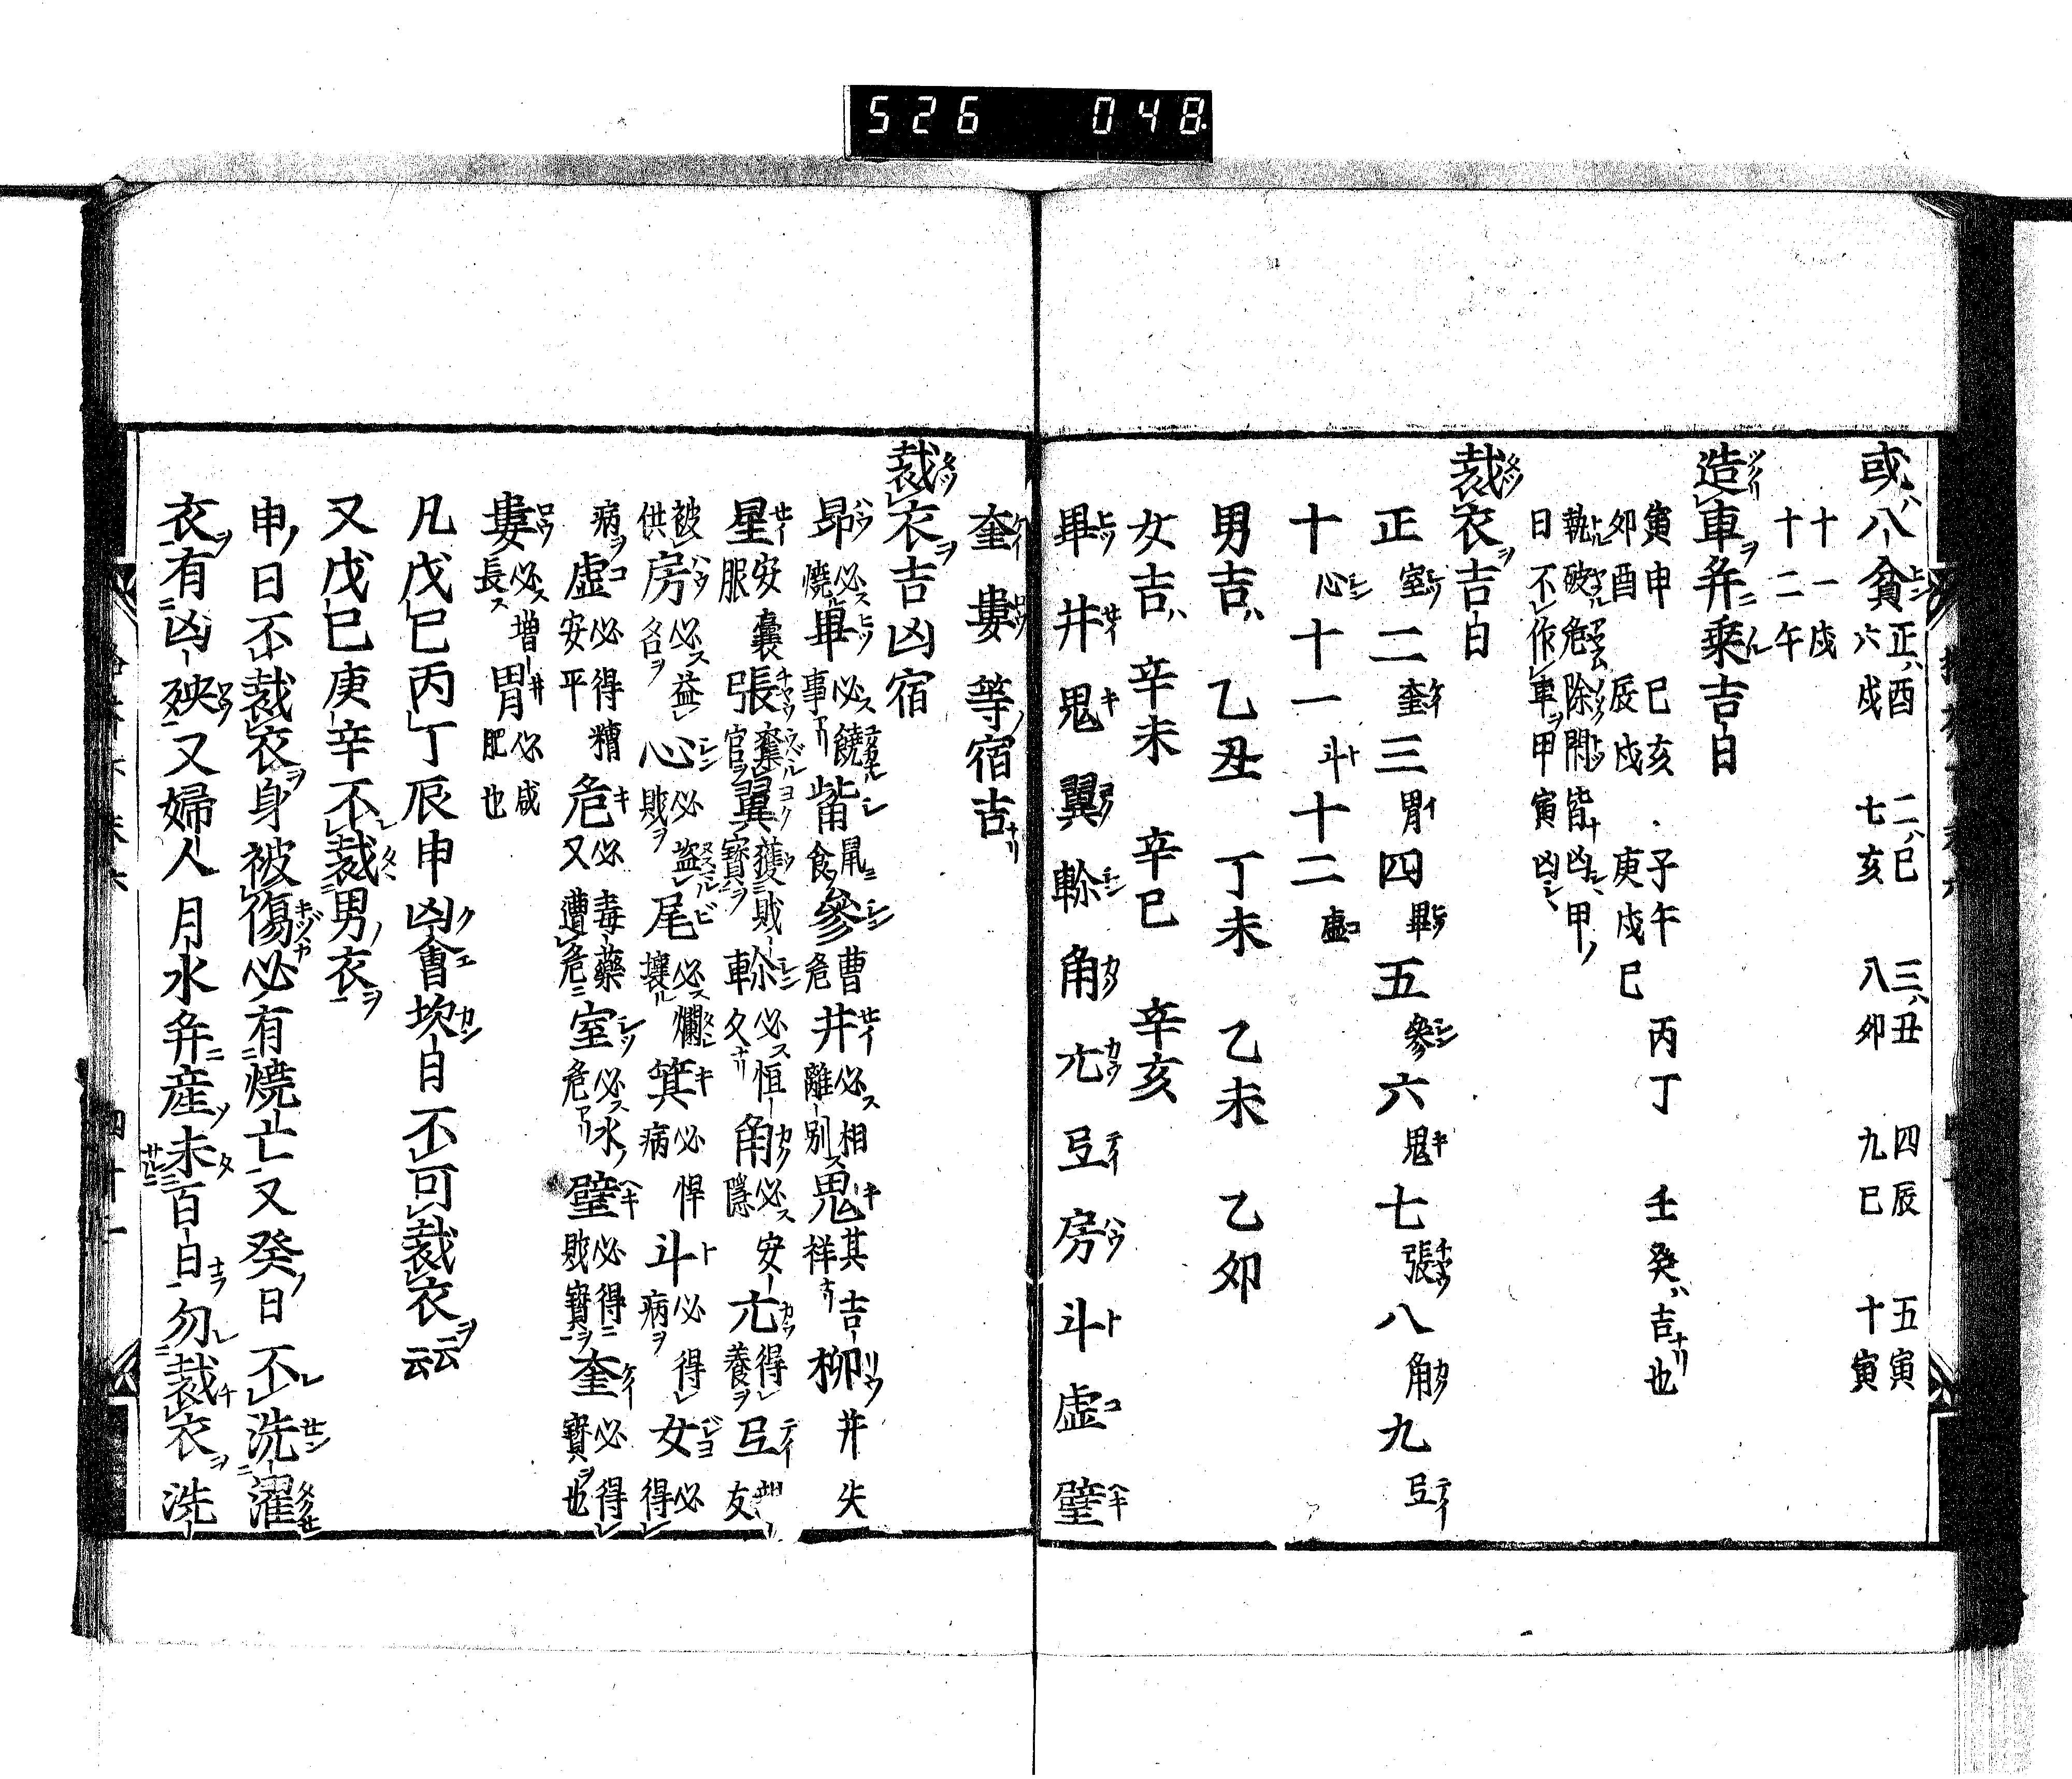 526 048
或八貧 正酉 二巳 三丑 四辰 五寅
六戌 七亥 八卯 九巳 十寅
十一戌
十二午
造車并乗吉日
寅申 巳亥 子午 丙丁 壬癸吉也
卯酉 辰戌 庚戌巳
執破危除開皆凶甲
日不作車甲寅凶
裁衣吉日
正室二奎三胃四畢五參六鬼七張八角九互
十心十一斗十二虚
男吉 乙丑 丁未 乙未 乙卯
女吉 辛未 辛巳 辛亥
畢井鬼翼軫角亢互房斗虚壁
奎婁等宿吉
裁衣吉凶宿
昴必燒畢必饒事觜鼠食參曹危井必相離別鬼其吉祥柳井失
星安嚢服張奪官翼獲財寳軫必恒久角必安隱亢得養互友
被供房必益名心必盗賊尾必爛壞箕必悍病斗必得病女必得
病虚必得糟安平危必毒藥又遭危室必水危壁必得財寳奎必得寳也
婁必増長胃必咸肥也
凡戊巳丙丁辰申凶會坎日不可裁衣云云
又戊巳庚辛不裁男衣
申日不裁衣身被傷必有燒亡又癸日不洗濯
衣有凶殃又婦人月水并産未百日勿裁衣洗